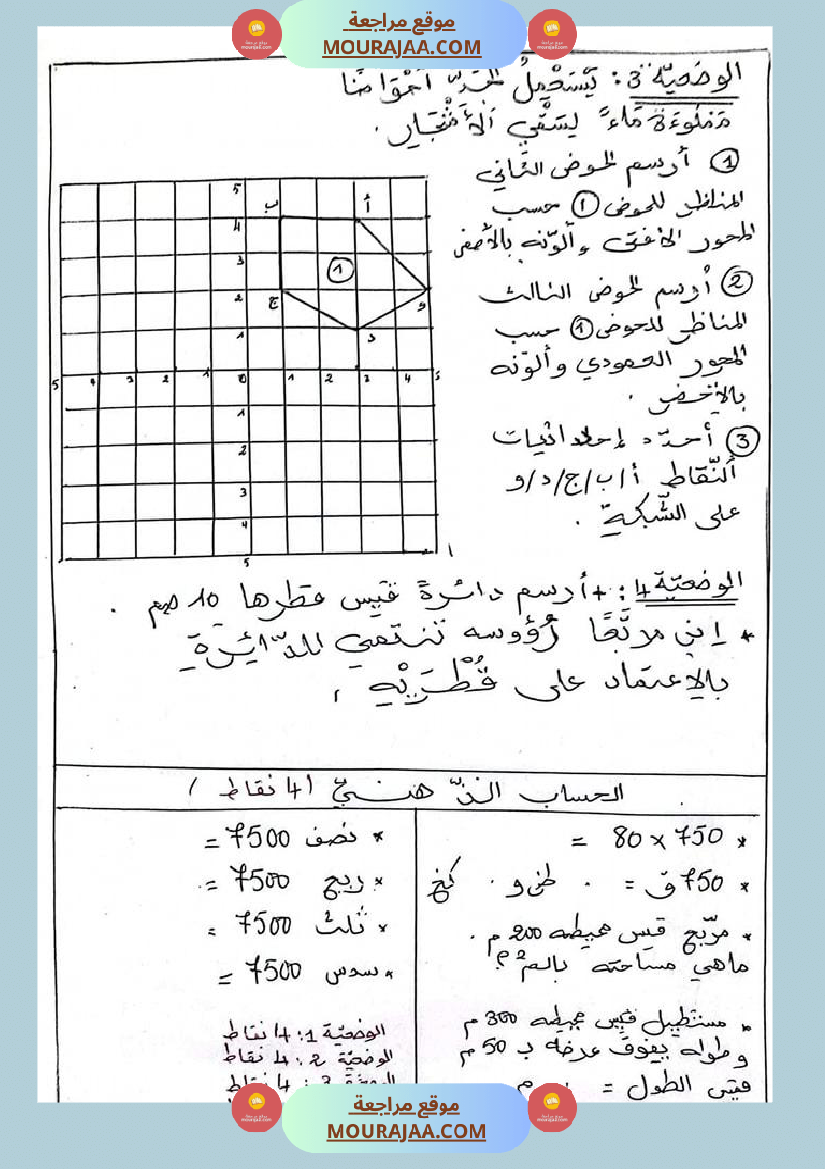 موقع مراجعة
MOURAJAA.COM
الوضعيّة 3: يَسْتَعْمِلُ الجَدُّ أَحْوَاضًا
مَمْلُوءَةً مَاءً لِسَقْيِ الْأَشْجَارِ.
① أرسم الحوض الثّاني
المناظر للحوض ① حسب
المحور الأفقي وألوّنه بالأصفر
② أرسم الحوض الثالث
المناظر للحوض ① حسب
المحور العمودي وألوّنه
بالأخضر.
③ أحدّد إحداثيات
النّقاط أ/ب/ج/د/و
على الشّبكة.
5
ب أ
4
3 ①
2 ج و
1 د
5 4 3 2 1 0 1 2 3 4 5
1
2
3
4
5
الوضعيّة 4: + أرسم دائرة قيس قطرها 10 صم.
* ابن مربّعًا رُؤوسه تنتمي للدّائِرَةِ
بالاعتماد على قُطْرَيْهِ.
الحساب الذّهنيّ (4 نقاط)
* 750 × 80 =
* 750 ق = . طن و . كغ
* مربّع قيس محيطه 200 م.
ماهي مساحته بالم²؟
* مستطيل قيس محيطه 300 م
وطوله يفوق عرضه ب 50 م
فقيس الطول = . م
* نصف 7500 =
* ربع 7500 =
* ثلث 7500 =
* سدس 7500 =
الوضعيّة 1: 4 نقاط
الوضعيّة 2: 4 نقاط
الوضعيّة 3: 4 نقاط
موقع مراجعة
MOURAJAA.COM